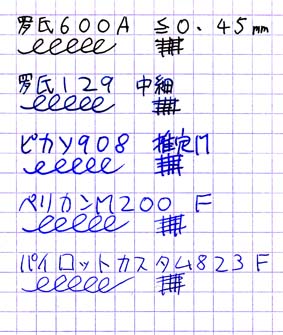 罗氏600A ≦0.45mm
罗氏129 中細
ピカソ908 推定M
ペリカンM200 F
パイロットカスタム823 F